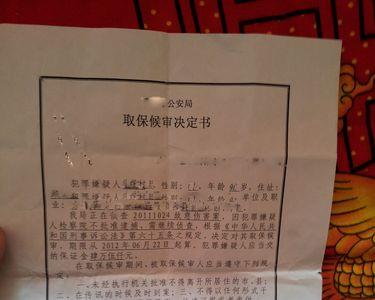 公安局
取保候审决定书
犯罪嫌疑人 性别: 年龄 岁, 住址:
单位及职
业:
我局正在侦查 20111024 故意伤害案, 因犯罪嫌疑
人检察院不批准逮捕, 需继续侦查, 根据《中华人民共
和国刑事诉讼法》第六十五条之规定, 决定对其取保候
审, 期限从 2012 年 06 月 22 日起算。犯罪嫌疑人应当交
的保证金肆万伍仟元。
在取保候审期间, 被取保候审人应当遵守下列规
定: 一、未经执行机关批准不得离开所居住的市、县;
二、在传讯的时候及时到案; 三、不得以任何形式干